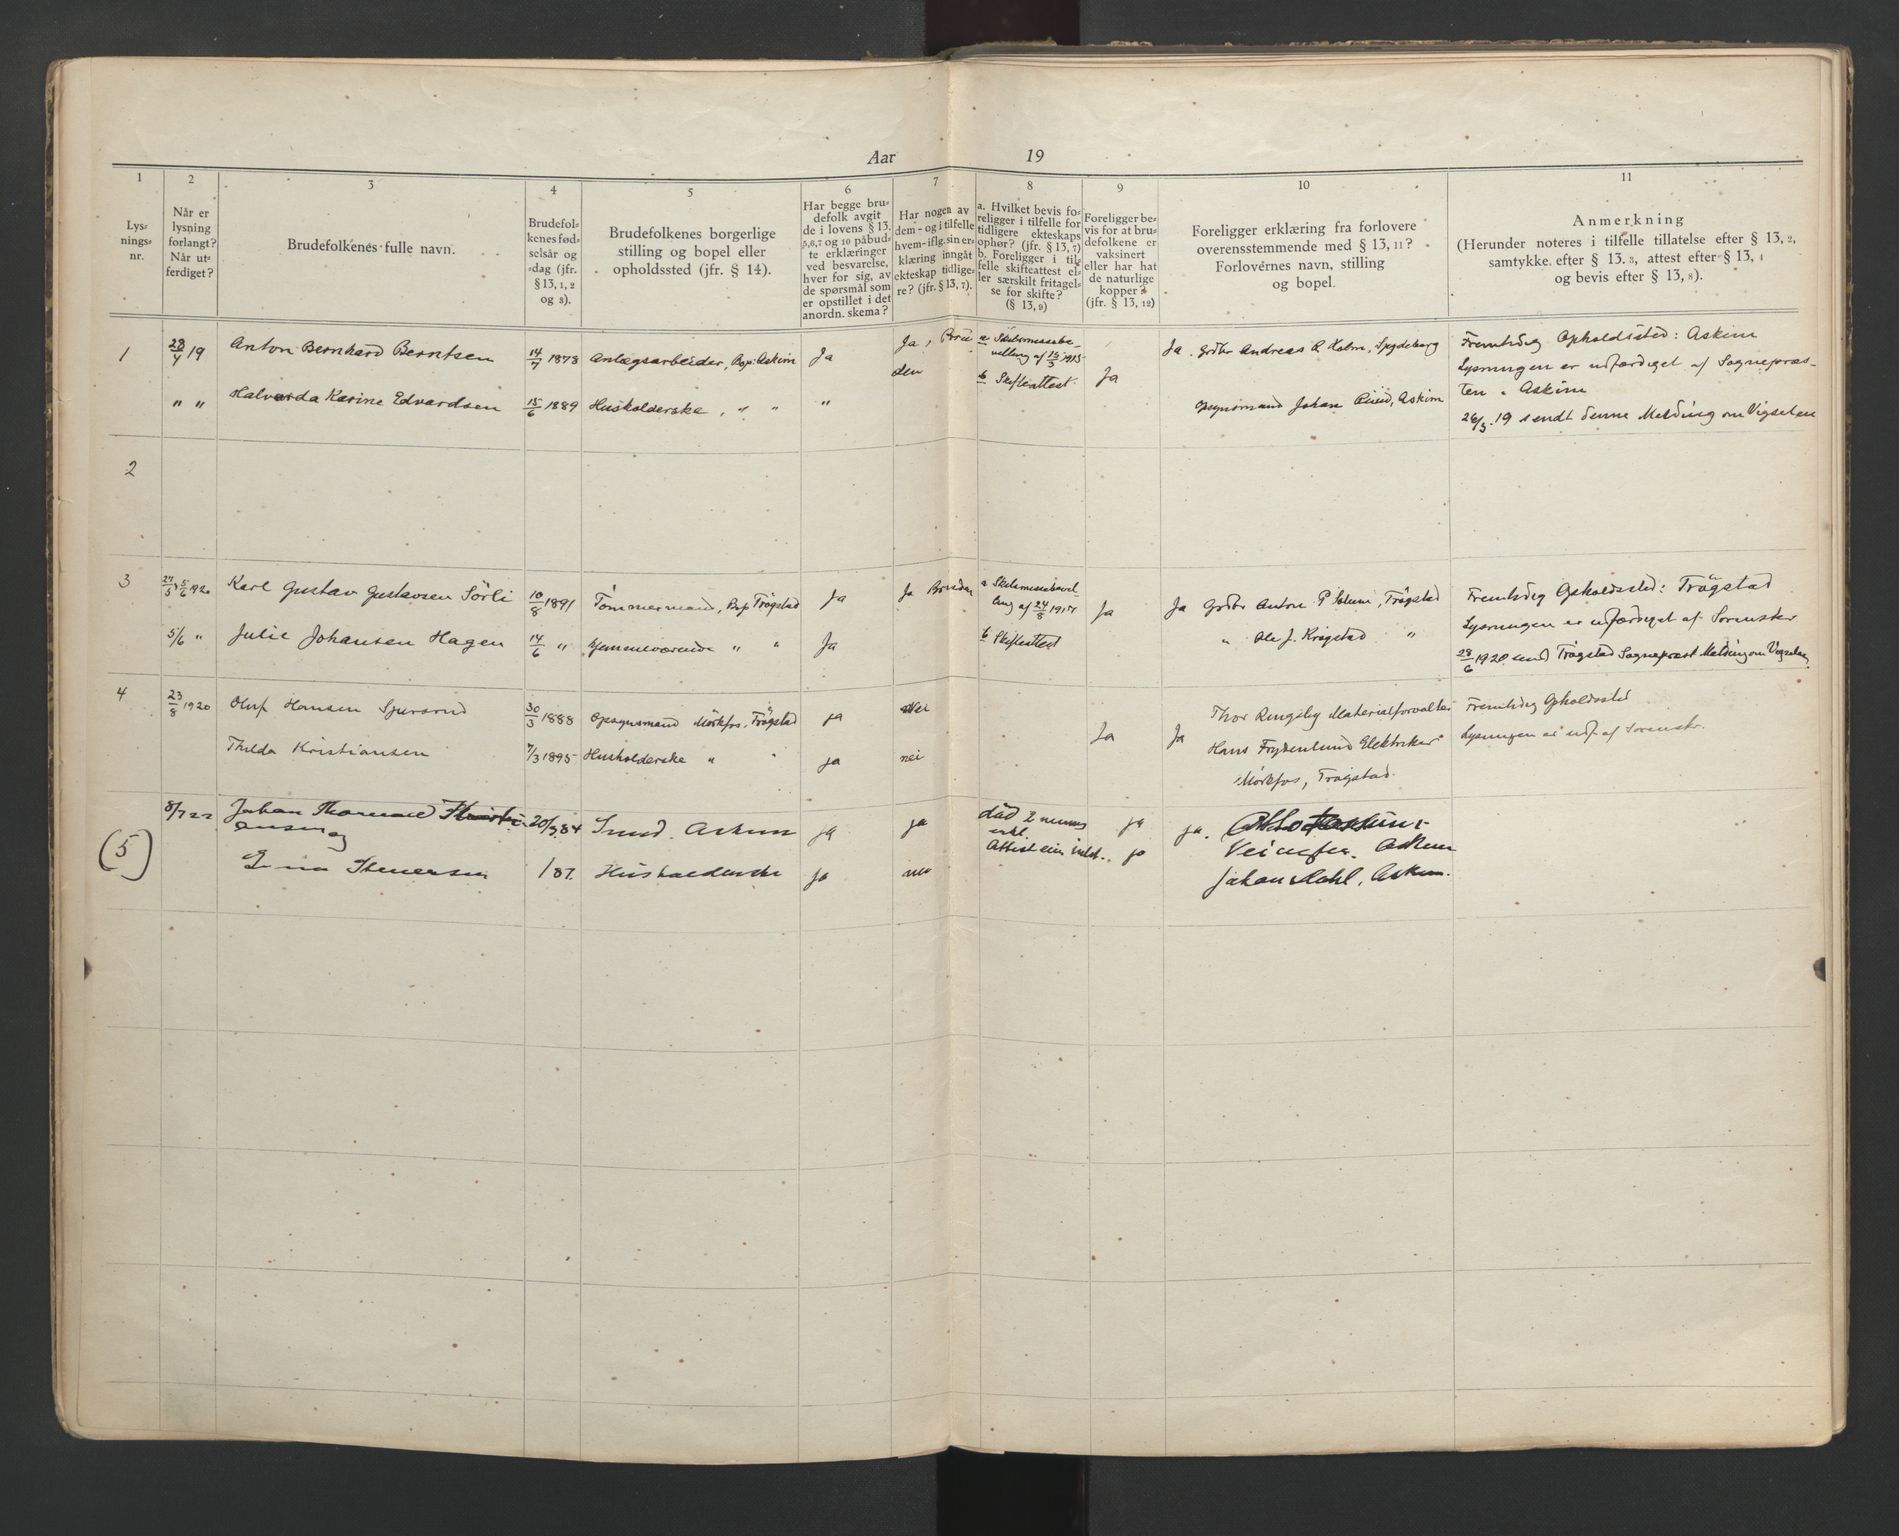 Aar 19
1 2 3 4 5 6 7 8 9 10 11
Lys-
nings-
nr.
Når er
lysning
forlangt?
Når ut-
ferdiget?
Brudefolkenes fulle navn.
Brudefol-
kenes fød-
selsår og
-dag (jfr.
§ 13, 1, 2
og 3).
Brudefolkenes borgerlige
stilling og bopel eller
opholdssted (jfr. § 14).
Har begge bru-
defolk avgit
de i lovens § 13,
5,6,7 og 10 påbud-
te erklæringer
ved besvarelse,
hver for sig, av
de spørsmål som
er opstillet i det
anordn. skema?
Har nogen av
dem - og i tilfelle
hvem - iflg. sin er-
klæring inngått
ekteskap tidlige-
re? (jfr. § 13, 7).
a. Hvilket bevis fo-
religger i tilfelle for
tidligere ekteskaps
ophør? (jfr. § 13, 7)
b. Foreligger i til-
felle skifteattest el-
ler særskilt fritagel-
se for skifte?
(§ 13, 9)
Foreligger be-
vis for at bru-
defolkene er
vaksinert
eller har hat
de naturlige
kopper?
(jfr. § 13, 12)
Foreligger erklæring fra forlovere
overensstemmende med § 13, 11?
Forlovernes navn, stilling
og bopel.
Anmerkning
(Herunder noteres i tilfelle tillatelse efter § 13, 2,
samtykke efter § 13. 3, attest efter § 13, 4
og bevis efter § 13, 8).
1 28/4 19 Anton Bernhard Berntsen 14/7 1878 Anlægsarbeider, Bop: Askim Ja Ja, Bru
den
a Skilsmissebe-
villing af 15/3 1915
b Skifteattest.
Ja
Ja. Grdbr Andreas A Holm, Spydeberg
Fremtidig Opholdssted: Askim
Lysningen er utfærdiget af Sognepræs-
ten i Askim
26/5 . 19 sendt denne Melding om Vigselen
" " Halvarda Karine Edvardsen 15/6 1889 Husholderske, " " "
Johan , Askim
2
3 27/5, 5/6 1920 Karl Gustav Gustavsen Sörli 10/8 1891 Tömmermand, Bop Trögstad Ja Ja Bruden
a Skilsmissebevil-
ling af 24/8 1917
b Skifteattest
Ja
Ja Grdbr Anton P Solum, Trögstad
Fremtidig Opholdssted: Trögstad
5/6 " Julie Johansen Hagen 14/6 " Hjemmeværende " " Ja
" Ole J. Krogstad "
Lysningen er utfærdiget af Sorenskr
28/6 1920 sendt Trögstad Sogneprest Melding om Vigselen
4 23/8 1920 Oluf Hansen 30/3 1888 Opsynsmand Mörkfos, Trögstad ja Nei
Ja Ja
Thor Ringsby Materialforvalter
Fremtidig Opholdssted
Thilda Kristiansen 7/3 1895 Husholderske " " ja nei
Hans Frydenlund Elektriker
Mörkfos, Trögstad.
Lysningen er utf af Sorenskr.
(5) 8/7 22 Johan Thorvald
og
20/9 84 Smed. Askim ja ja
död
erkl.
Attest
ja ja.
Askim
Stenersen 1/87. Husholderske ja nei
ja
Johan Dahl, Askim.